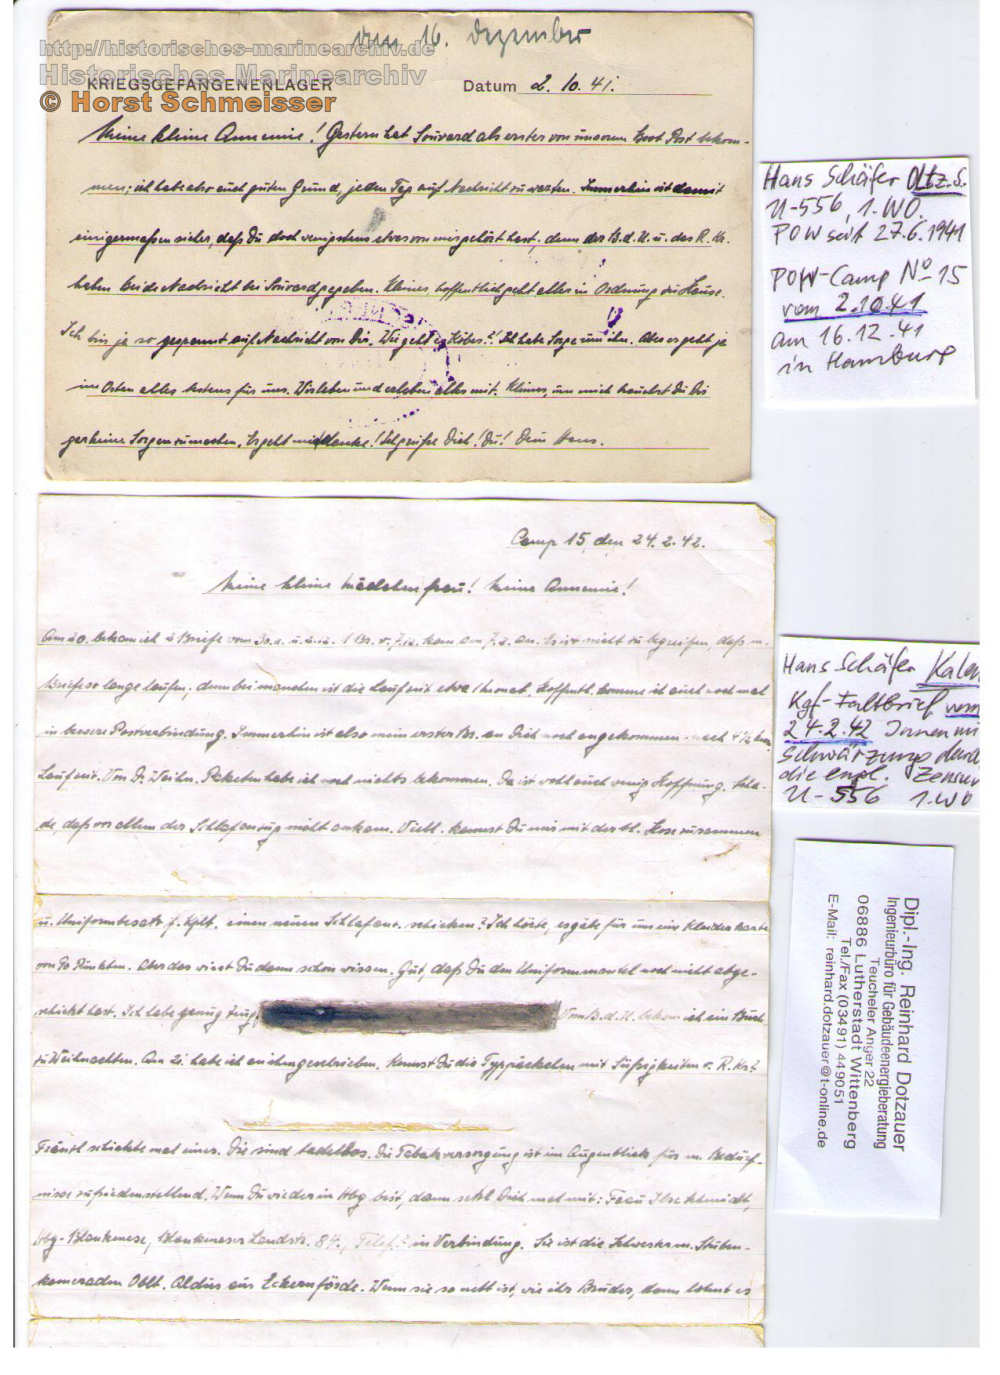 den 16. Dezember
http://historisches-marinearchiv.de
Historisches Marinearchiv
KRIEGSGEFANGENENLAGER
Datum 2. 10. 41.
© Horst Schmeisser
Meine kleine Annemie! Gestern hat Souvard als erster von unserem Boot Post bekom-
men; ich habe also auch guten Grund, jeden Tag auf Nachricht zu warten. Immerhin ist damit
einigermaßen sicher, daß Du doch wenigstens etwas von mir gehört hast, denn der B.d.U. u. das R. Kr.
haben beide Nachricht bei Souvard gegeben. Kleines hoffentlich geht alles in Ordnung zu Hause.
Ich bin ja so gespannt auf Nachricht von Dir. Wie geht es Köbes? Ich habe Sorge um ihn. Aber es geht ja
im Osten alles bestens für uns. Wir leben und erleben alles mit. Kleines, um mich brauchst Du Dir
gar keine Sorgen zu machen. Es geht mir danke! Ich grüße Dich! Du! Dein Hans.
Hans Schäfer Oltz.S.
U-556, 1.WO.
POW seit 27.6.1941
POW-Camp No 15
vom 2.10.41
am 16.12.41
in Hamburg
Camp 15, den 24. 2. 42.
Meine kleine Mädchenfrau! Meine Annemie!
Am 20. bekam ich 2 Briefe vom 30.11. u. 2.12. 1 Br. v. 7.12. kam am 7.2. an. Es ist nicht zu begreifen, daß m.
Briefe so lange laufen, denn bei manchen ist die Laufzeit etwa 1 Monat. Hoffentl. komme ich auch noch mal
in bessere Postverbindung. Immerhin ist also mein erster Br. an Dich noch angekommen nach 4½
Laufzeit. Von Dr. Weihn. Paketen habe ich noch nichts bekommen. Da ist wohl auch wenig Hoffnung. Scha-
de, daß vor allem der Schlafanzug nicht ankam. Viell. kannst Du mir mit der bl. Hose zusammen
u. Uniformbesatz f. Kplt. einen neuen Schlafanz. schicken? Ich hörte, es gäbe für uns eine Kleiderkarte
von 90 Punkten. Aber das wirst Du dann schon wissen. Gut, daß Du den Uniformmantel noch nicht abge-
schickt hast. Ich habe genug Zeug Vom B.d.U. bekam ich ein Buch
zu Weihnachten. Am 21. habe ich an ihn geschrieben. Kennst Du die Typpäckchen mit Süßigkeiten v. R. Kr.?
Fräntl schickte mal eines. Die sind tadellos. Die Tabakversorgung ist im Augenblick für m. Bedürf-
nisse zufriedenstellend. Wenn Du wieder in Hbg. bist, dann setz Dich mal mit: Frau Ilse Schmidt,
Hbg-Blankenese, Blankeneser Landstr. 84, Telef.? in Verbindung. Sie ist die Schwester m. Stuben-
kameraden Oblt. Aldus aus Eckernförde. Wenn sie so nett ist, wie ihr Bruder, dann lohnt es
Hans Schäfer Kalen
Kgf-Faltbrief vom
24.2.42 Innen mi
Schwärzung durch
die engl. Zensur
U-556 1.WO
Dipl.-Ing. Reinhard Dotzauer
Ingenieurbüro für Gebäudeenergieberatung
Teucheler Anger 22
06886 Lutherstadt Wittenberg
Tel./Fax (03491) 449051
E-Mail: reinhard.dotzauer@t-online.de